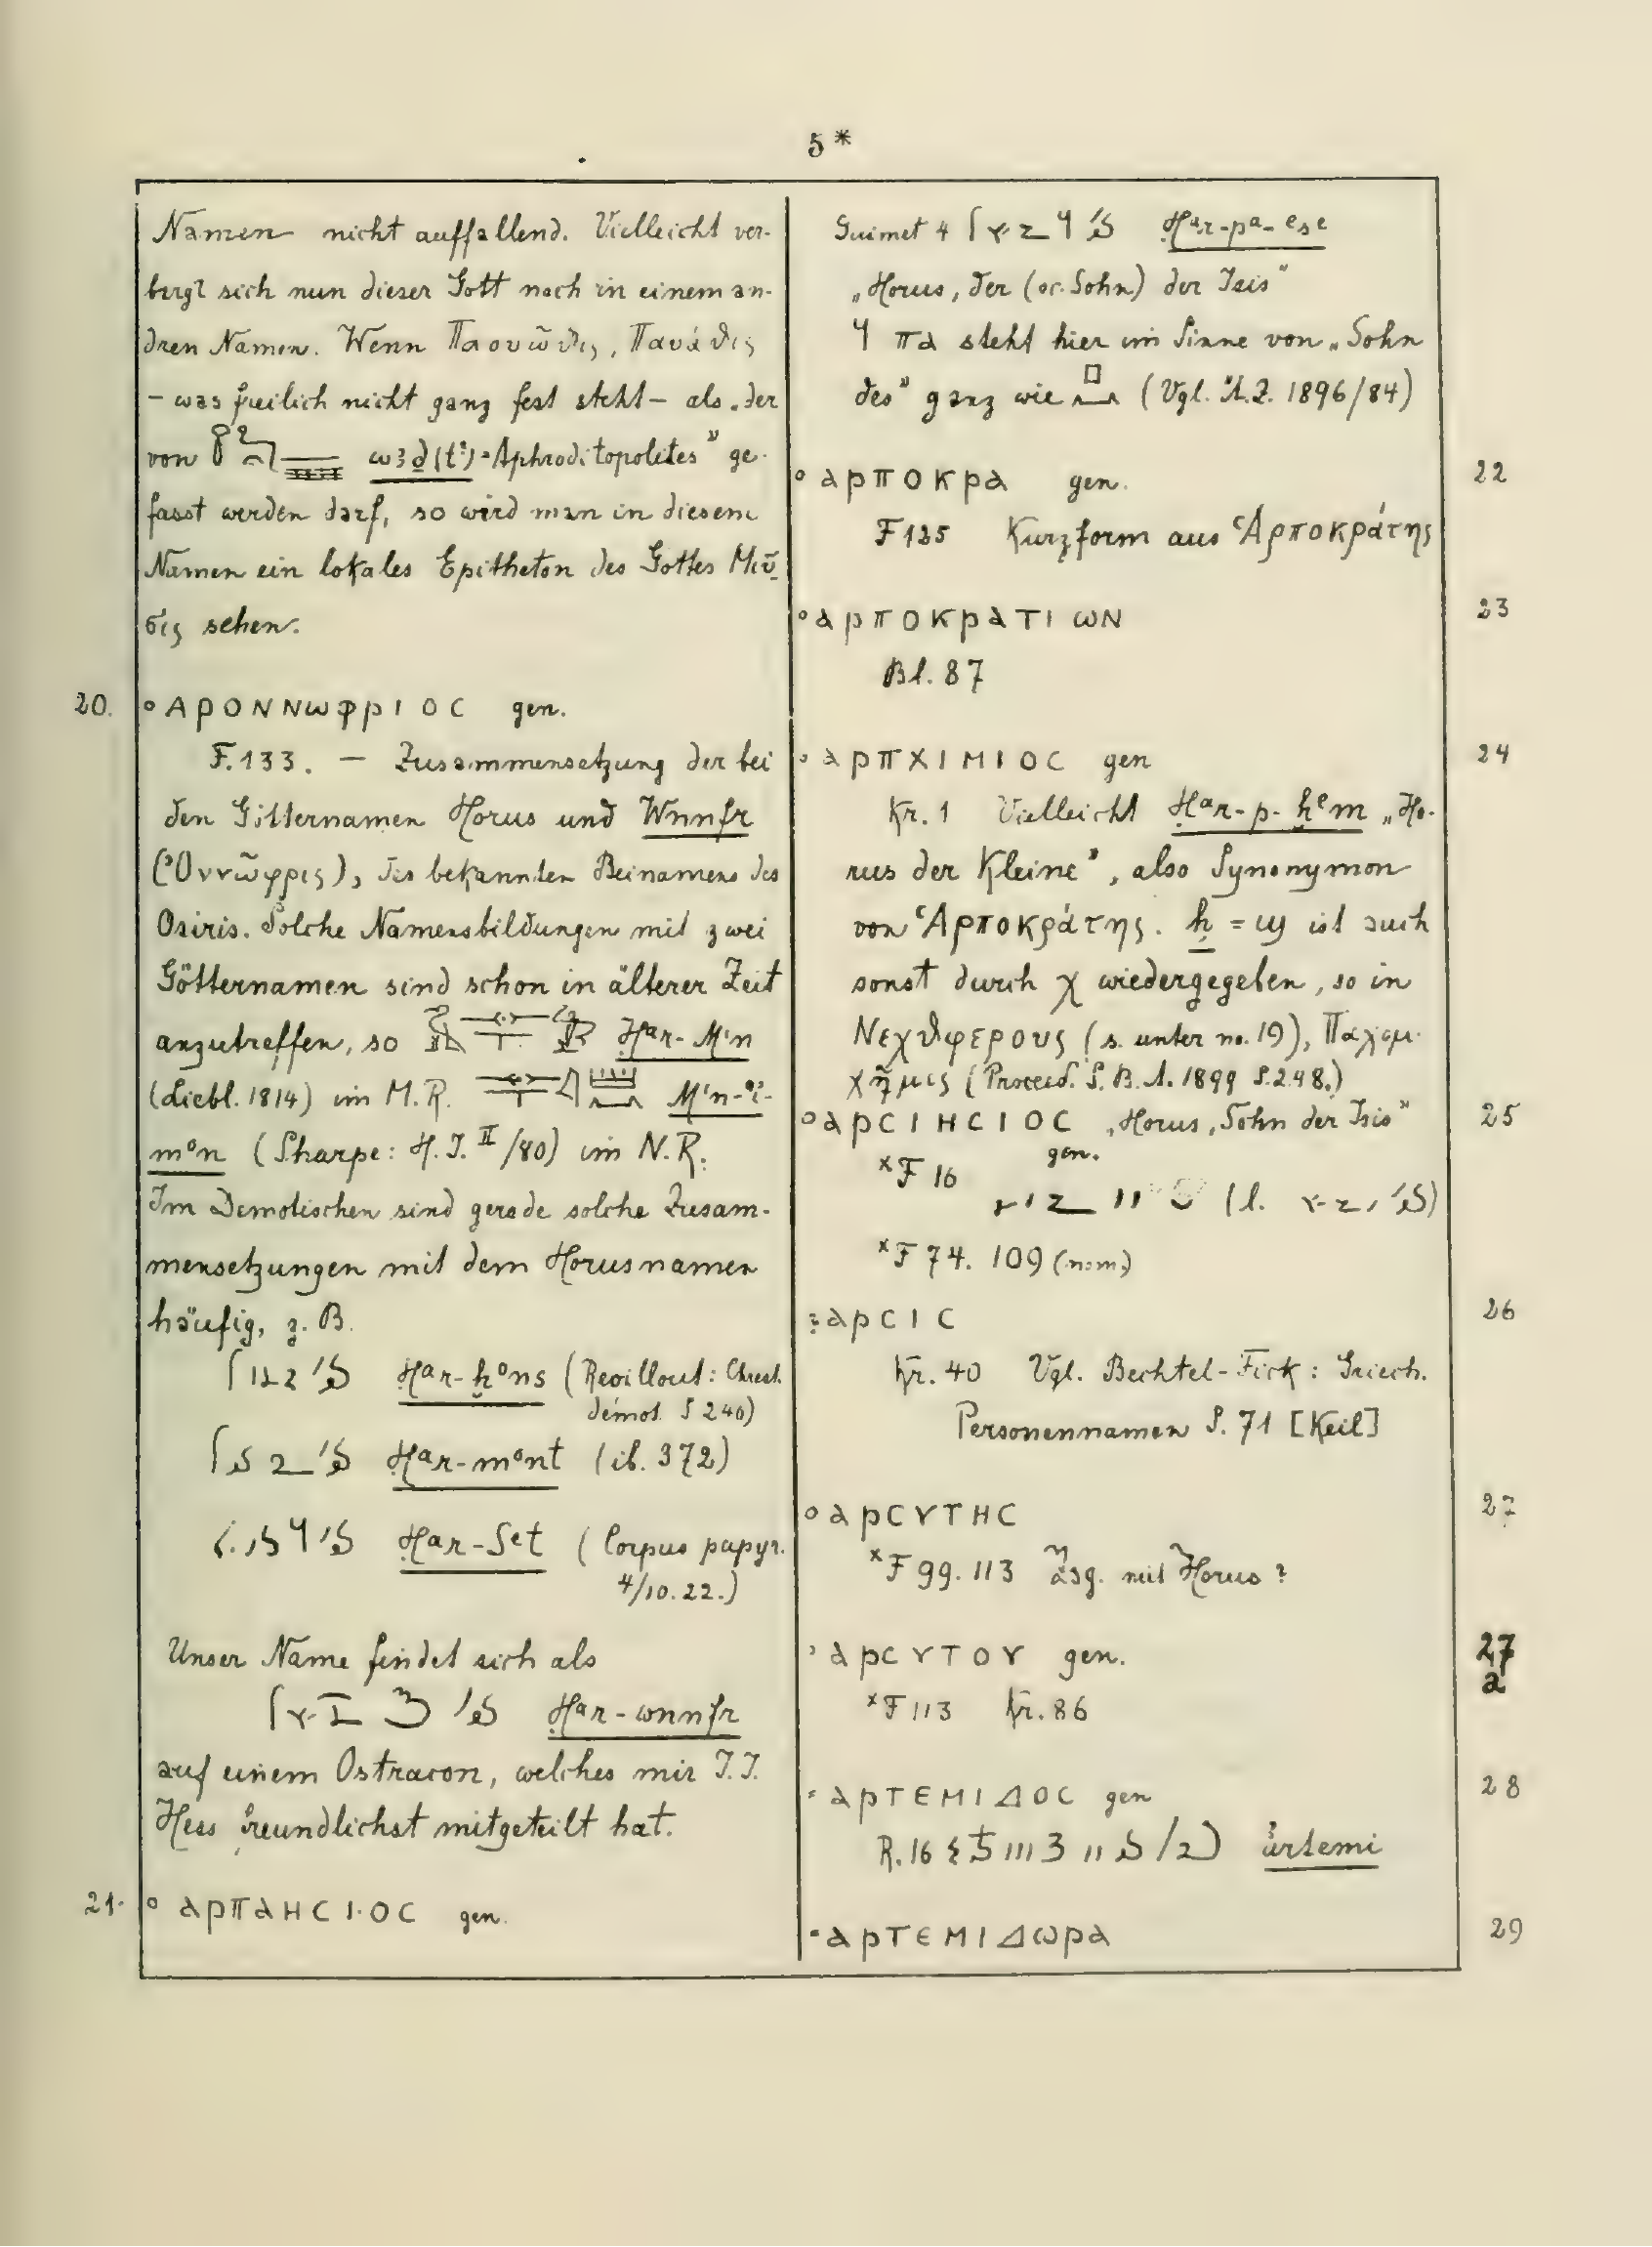 5*
Namen nicht auffallend. Vielleicht ver-
birgt sich nun dieser Gott noch in einem an-
dren Namen. Wenn Παουῶθις, Παυάθις
– was freilich nicht ganz fest steht – als „der
von wꜣḏ(t:) = Aphroditopolites" ge-
fasst werden darf, so wird man in diesem
Namen ein lokales Epitheton des Gottes Μῦ-
σις sehen.
20. °ΑΡΟΝΝωφΡΙΟC gen.
F. 133. — Zusammensetzung der bei
den Götternamen Horus und Wnnfr
(Ὀννῶφρις), des bekannten Beinamens des
Osiris. Solche Namensbildungen mit zwei
Götternamen sind schon in älterer Zeit
anzutreffen, so Ḥar-Min
(Liebl. 1814) im M.R.
mon (Sharpe: H.I. II/80) im N.R.
Im Demotischen sind gerade solche Zusam-
mensetzungen mit dem Horusnamen
häufig, z. B.
Ḥar-ḫons (Revillout: Chrest.
démot. S 240)
Ḥar-mont (ib. 372)
Ḥar-Set (Corpus papyr.
4/10. 22.)
Unser Name findet sich als
Ḥar-wnnfr
auf einem Ostracon, welches mir J.J.
Hess freundlichst mitgeteilt hat.
21. ° ⲁⲣⲡⲁⲏⲥⲓⲟⲥ gen.
Guimet 4 Ḥar-pa-ese
„Horus, der (sc. Sohn) der Isis"
ⲡⲁ steht hier im Sinne von „Sohn
des" ganz wie (Vgl. Ä.Z. 1896/84)
°ⲁⲣⲡⲟⲕⲣⲁ gen. 22
F 125 Kurzform aus Ἁρποκράτης
°ⲁⲣⲡⲟⲕⲣⲁⲧⲓⲱⲛ 23
Bl. 87
°ⲁⲣⲡⲭⲓⲙⲓⲟⲥ gen 24
Kr. 1 Vielleicht Ḥar-p-ḫem „Ho-
rus der Kleine", also Synonymon
von Ἁρποκράτης. ḫ = ϣ ist auch
sonst durch χ wiedergegeben, so in
Νεχθφερους (s. unter no. 19), Παχομ-
χῆμις (Proceed. S.B.A. 1899 S. 248.)
°ⲁⲣⲥⲓⲏⲥⲓⲟⲥ „Horus, Sohn der Isis" 25
gen.
ˣF 16
(l. )
ˣF 74. 109 (nom.)
ⲁⲣⲥⲓⲥ 26
Kr. 40 Vgl. Bechtel-Fick: Griech.
Personennamen S. 71 [Keil]
°ⲁⲣⲥⲩⲧⲏⲥ 27
ˣF 99. 113 Zsg. mit Horus?
ⲁⲣⲥⲩⲧⲟⲩ gen. 27a
ˣF 113 Kr. 86
ⲁⲣⲧⲉⲙⲓⲇⲟⲥ gen 28
R. 16 artemi
ⲁⲣⲧⲉⲙⲓⲇⲱⲣⲁ 29